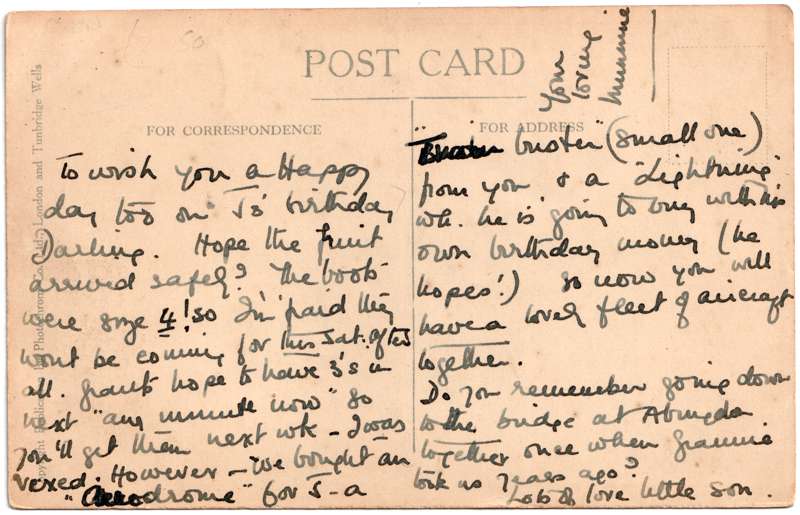 POST CARD
FOR CORRESPONDENCE
To wish you a Happy
day too on J's' birthday
Darling. Hope the fruit
arrived safely? The boots
were size 4! so I'm
wont be coming for this Sat. after
all. Grants hope to have 3's in
next "any minute now" so
you'll get them next wk - I was
vexed. However - We bought an
"Aerodrome" for J - a
FOR ADDRESS
buster" (small one)
from you & a 'Lightning'
wh. he is going to buy with his
own birthday money (he
hopes!) So now you will
have a lovely fleet of aircraft
together.
Do you remember going down
to the bridge at Abingdon
together once when Grannie
took us years ago?
Lots of love little son.
Your
loving
Mummie
London and Tunbridge Wells